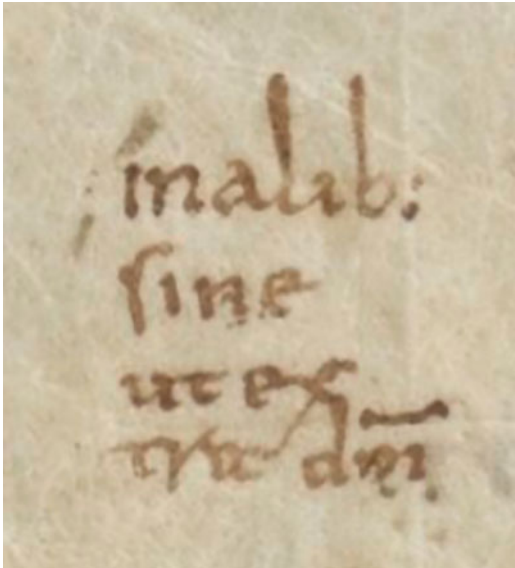 in alib:
sine
ut ex
tra dm̅